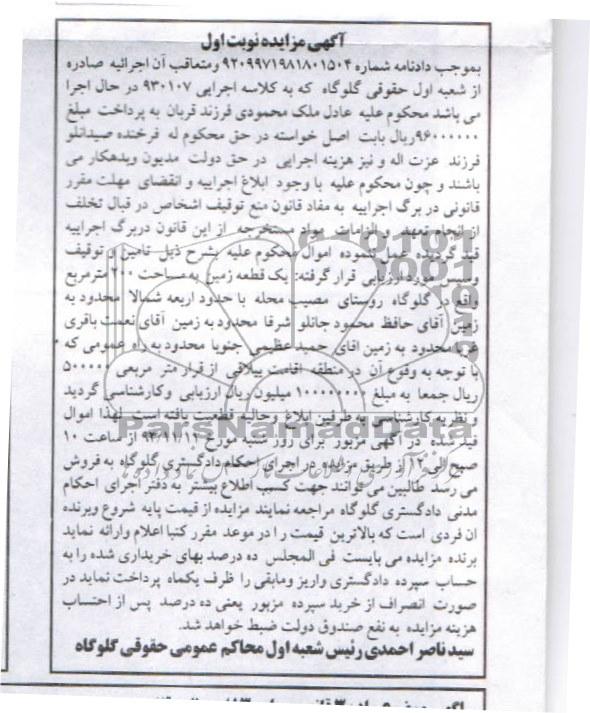 آگهی مزایده نوبت اول
بموجب دادنامه شماره ۹۲۰۹۹۷۱۹۸۱۸۰۱۵۰۴ ومتعاقب آن اجرائیه صادره
از شعبه اول حقوقی گلوگاه که به کلاسه اجرایی ۹۳۰۱۰۷ در حال اجرا
می باشد محکوم علیه عادل ملک محمودی فرزند قربان به پرداخت مبلغ
۹۶۰۰۰۰۰۰ریال بابت اصل خواسته در حق محکوم له فرخنده صیدانلو
فرزند عزت اله و نیز هزینه اجرایی در حق دولت مدیون وبدهکار می
باشند و چون محکوم علیه با وجود ابلاغ اجراییه و انقضای مهلت مقرر
قانونی در برگ اجراییه به مفاد قانون منع توقیف اشخاص در قبال تخلف
از انجام تعهد و الزامات مواد مستخرجه از این قانون دربرگ اجراییه
قید گردیده عمل ننموده اموال محکوم علیه بشرح ذیل تامین و توقیف
وسپس مورد ارزیابی قرار گرفته: یک قطعه زمین به مساحت ۲۰۰ مترمربع
واقع در گلوگاه روستای مصیب محله با حدود اربعه شمالا محدود به
زمین آقای حافظ محمود جانلو شرقا محدود به زمین آقای نعمت باقری
غربا محدود به زمین اقای حمید عظیمی جنوبا محدود به راه عمومی که
با توجه به وقوع آن در منطقه اقامت ییلاقی از قرار متر مربعی ۵۰۰۰۰۰
ریال جمعا به مبلغ ۱۰۰۰۰۰۰۰۰ میلیون ریال ارزیابی وکارشناسی گردید
و نظریه کارشناسی به طرفین ابلاغ وحالیه قطعیت یافته است لهذا اموال
قید شده در آگهی مزبور برای روز شنبه مورخ ۹۴/۱۱/۱۱ از ساعت ۱۰
صبح الی ۱۲ از طریق مزایده در اجرای احکام دادگستری گلوگاه به فروش
می رسد طالبین می توانند جهت کسب اطلاع بیشتر به دفتر اجرای احکام
مدنی دادگستری گلوگاه مراجعه نمایند مزایده از قیمت پایه شروع وبرنده
ان فردی است که بالاترین قیمت را در موعد مقرر کتبا اعلام وارائه نماید
برنده مزایده می بایست فی المجلس ده درصد بهای خریداری شده را به
حساب سپرده دادگستری واریز ومابقی را ظرف یکماه پرداخت نماید در
صورت انصراف از خرید سپرده مزبور یعنی ده درصد پس از احتساب
هزینه مزایده به نفع صندوق دولت ضبط خواهد شد.
سید ناصر احمدی رئیس شعبه اول محاکم عمومی حقوقی گلوگاه
ParsNamadData